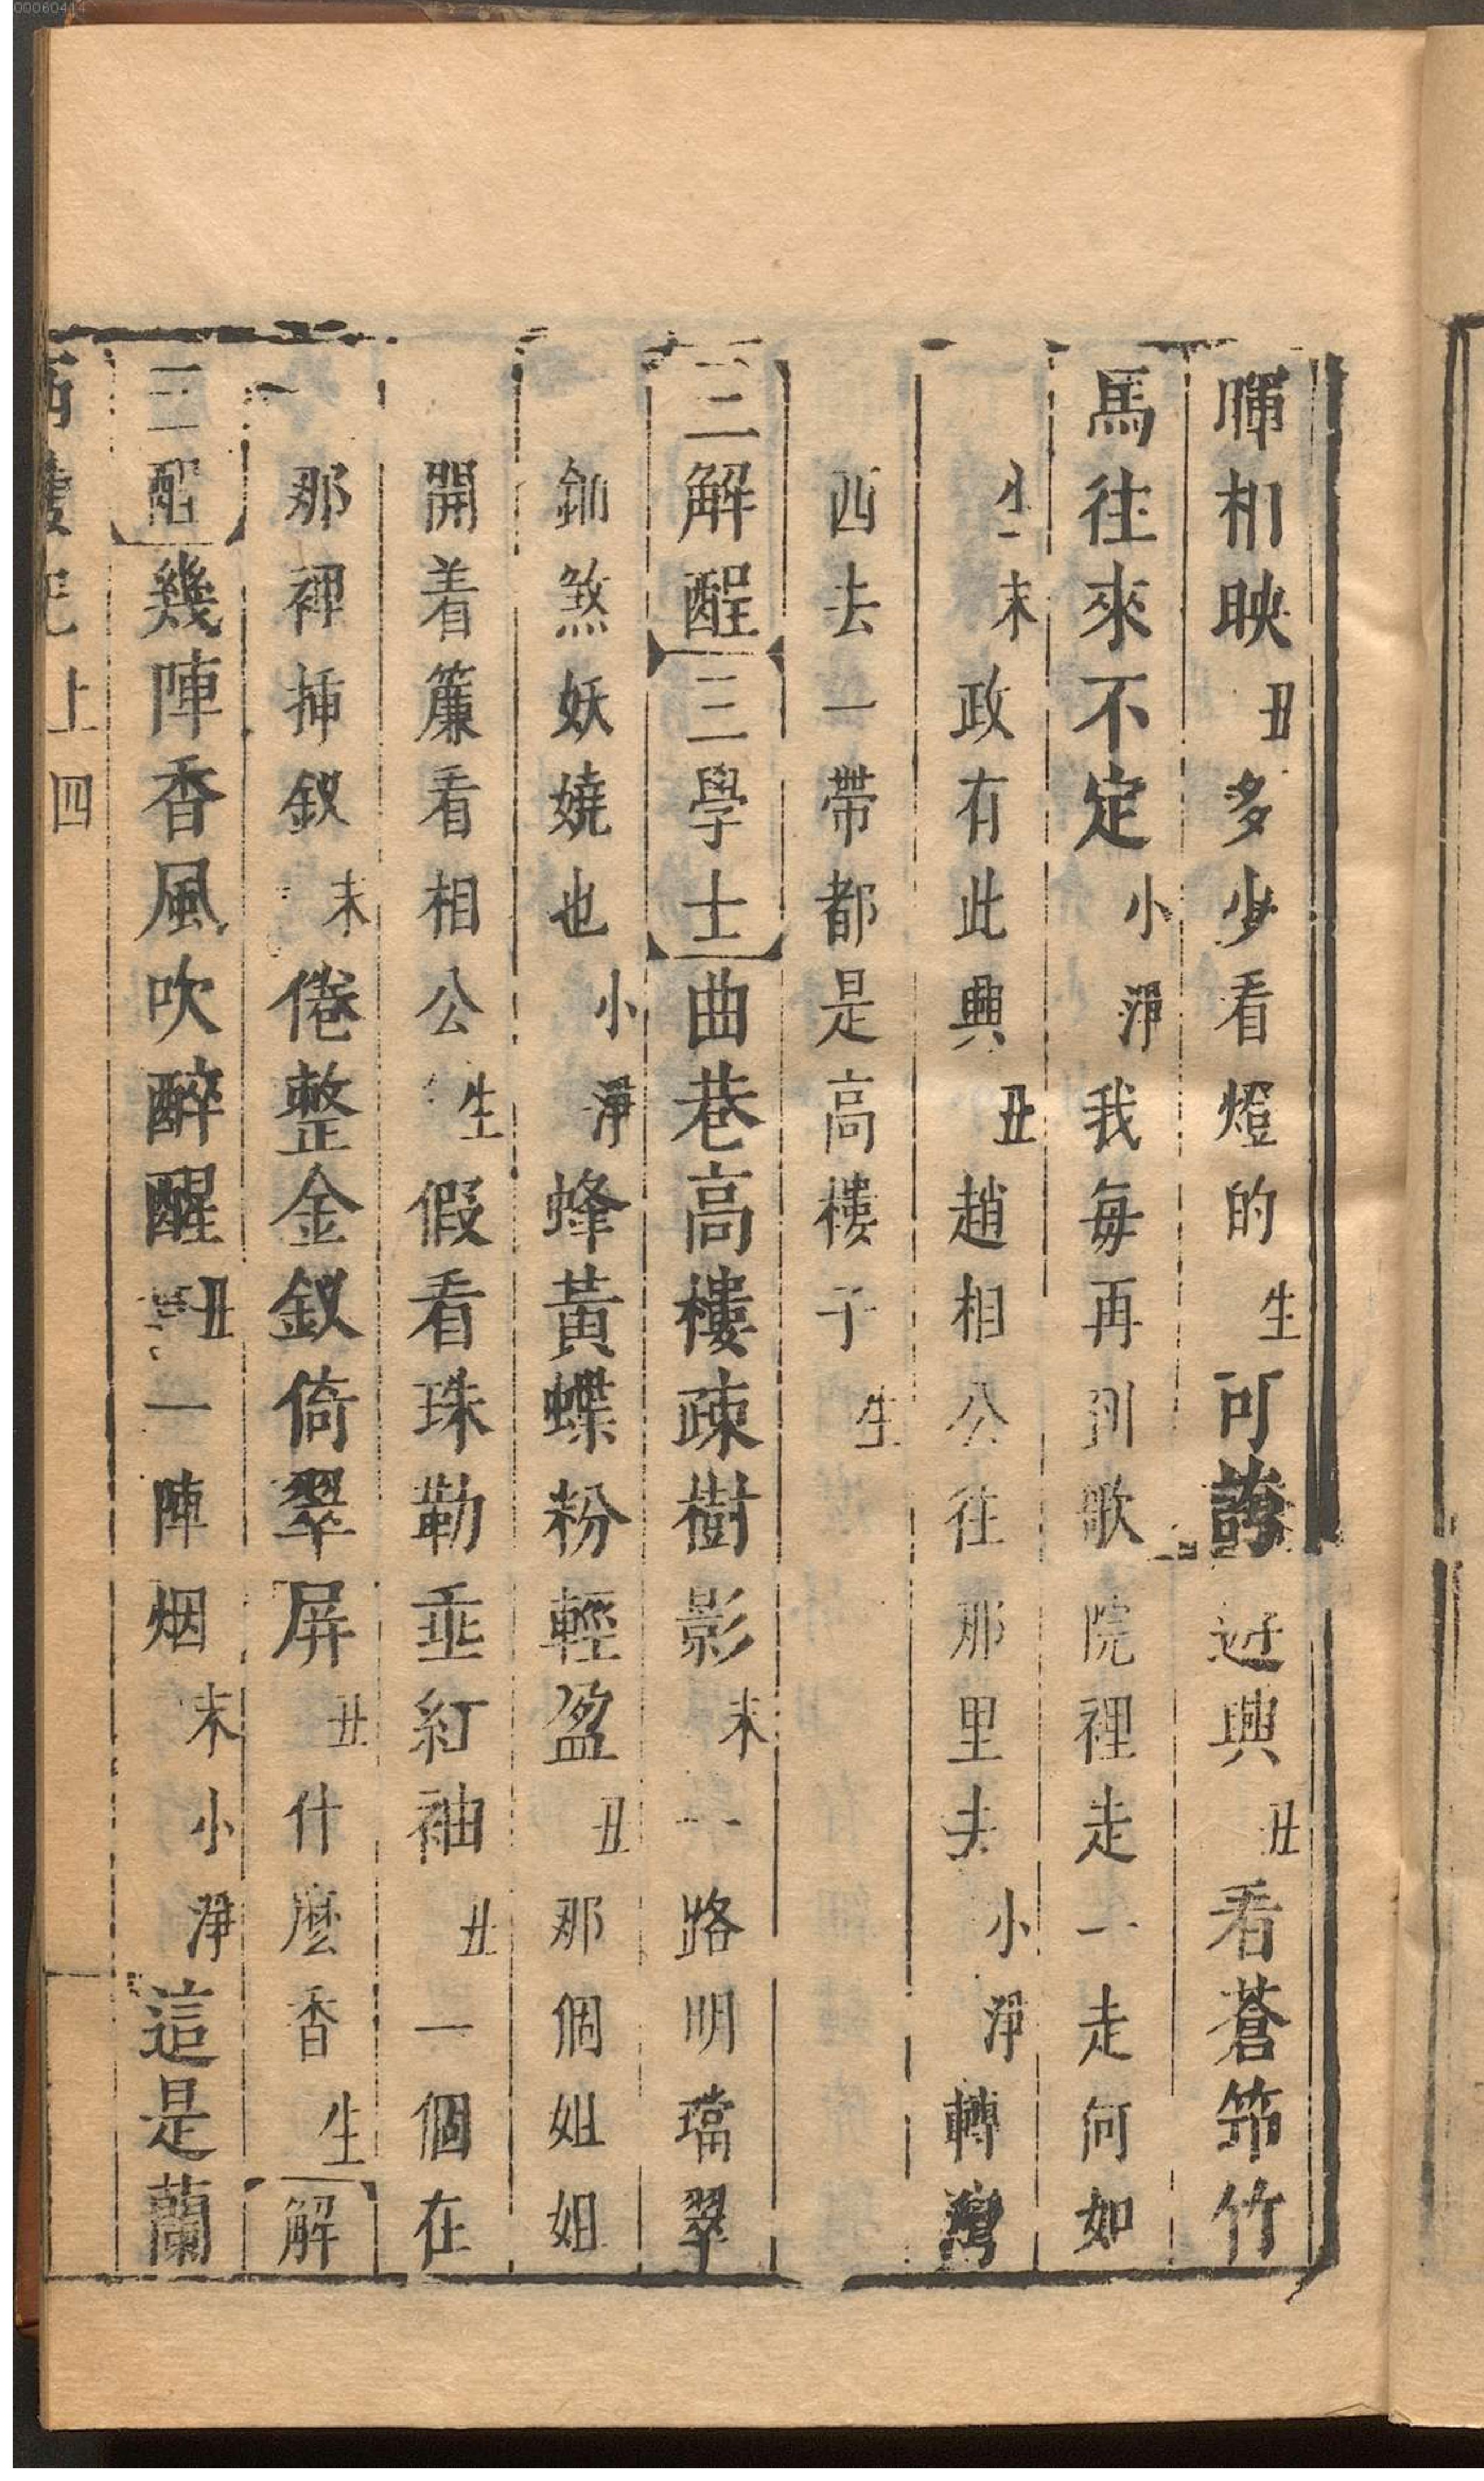 暉相映丑多少看燈的生可誇遊興丑看蒼笻竹
馬往來不定小淨我每再到歌院裡走一走何如
生末政有此興丑趙相公往那里去小淨轉灣
西去一帶都是高樓子生
二解酲三學士曲巷高樓疎樹影末一路明璫翠
鈿煞妖嬈也小淨蜂黃蝶粉輕盈丑那個姐姐
開着簾看相公生假看珠勒垂紅袖丑一個在
那裡揷釵末倦整金釵倚翠屏丑什麽香生解
三酲幾陣香風吹醉醒丑一陣烟末小淨這是蘭
上 四
00060414